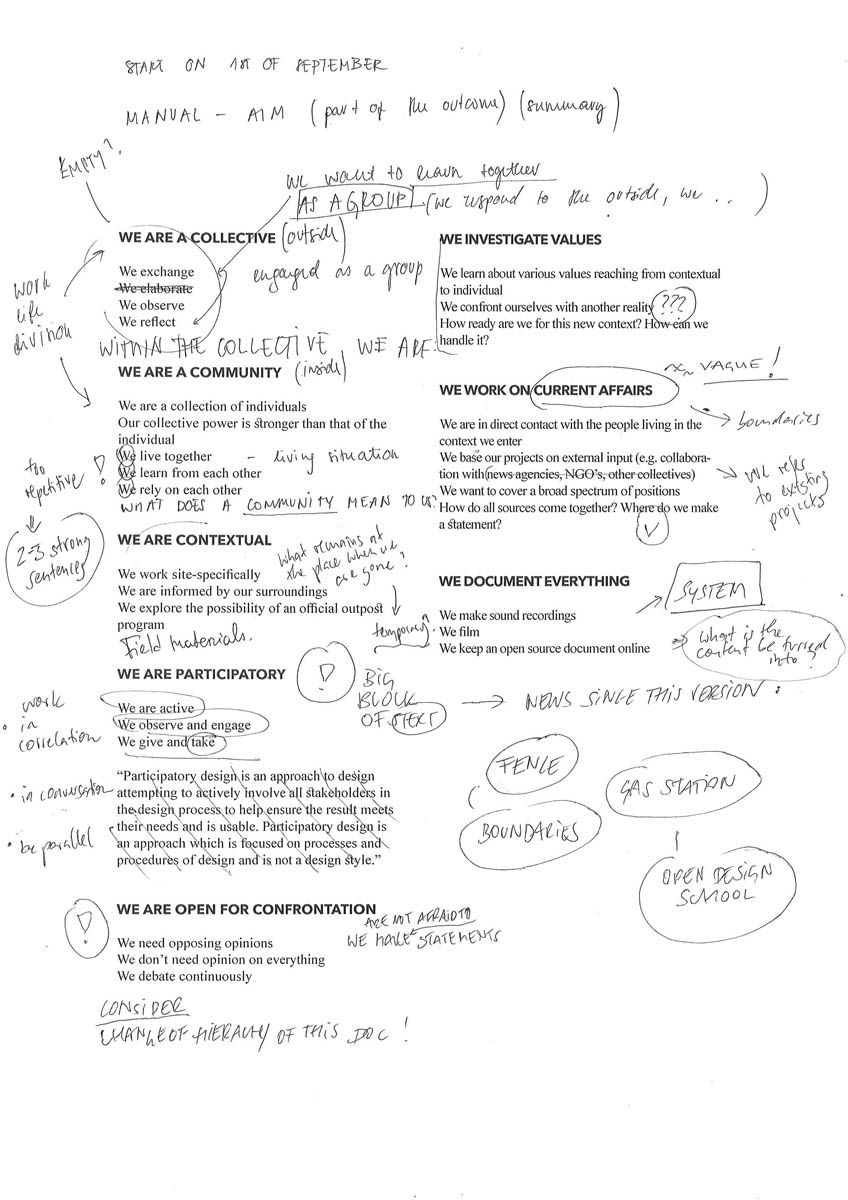 START ON 1ST OF SEPTEMBER
MANUAL – AIM (part of the outcome) (summary)
EMPTY?
WE WANT to learn together
AS A GROUP (we respond to the outside, we ..)
WE ARE A COLLECTIVE (outside)
We exchange
We elaborate
We observe
We reflect
engaged as a group
work
life
division
WITHIN THE COLLECTIVE, WE ARE:
WE ARE A COMMUNITY (inside)
We are a collection of individuals
Our collective power is stronger than that of the
individual
We live together – living situation
We learn from each other
We rely on each other
too
repetitive!
2-3 strong
sentences
WHAT DOES A COMMUNITY MEAN TO US?
WE ARE CONTEXTUAL
What remains at
the place when we
are gone?
We work site-specifically
We are informed by our surroundings
We explore the possibility of an official outpost
program
temporary
Field materials.
WE ARE PARTICIPATORY
!
We are active
We observe and engage
We give and take
• work
in
correlation
• in conversation
• be parallel
“Participatory design is an approach to design
attempting to actively involve all stakeholders in
the design process to help ensure the result meets
their needs and is usable. Participatory design is
an approach which is focused on processes and
procedures of design and is not a design style.”
WE ARE OPEN FOR CONFRONTATION
!
ARE NOT AFRAID TO
WE MAKE STATEMENTS
We need opposing opinions
We don’t need opinion on everything
We debate continuously
CONSIDER
CHANGE OF HIERACHY OF THIS DOC!
WE INVESTIGATE VALUES
We learn about various values reaching from contextual
to individual
We confront ourselves with another reality ???
How ready are we for this new context? How can we
handle it?
VAGUE!
WE WORK ON CURRENT AFFAIRS
→ boundaries
We are in direct contact with the people living in the
context we enter
We base our projects on external input (e.g. collabora-
tion with news agencies, NGO’s, other collectives)
We want to cover a broad spectrum of positions
How do all sources come together? Where do we make
a statement?
→ WE refer
to existing
projects
WE DOCUMENT EVERYTHING
SYSTEM
We make sound recordings
We film
We keep an open source document online
What is the
content be turned
into?
BIG
BLOCK
OF TEXT
→ NEWS SINCE THIS VERSION:
FENCE
BOUNDARIES
GAS STATION
OPEN DESIGN
SCHOOL